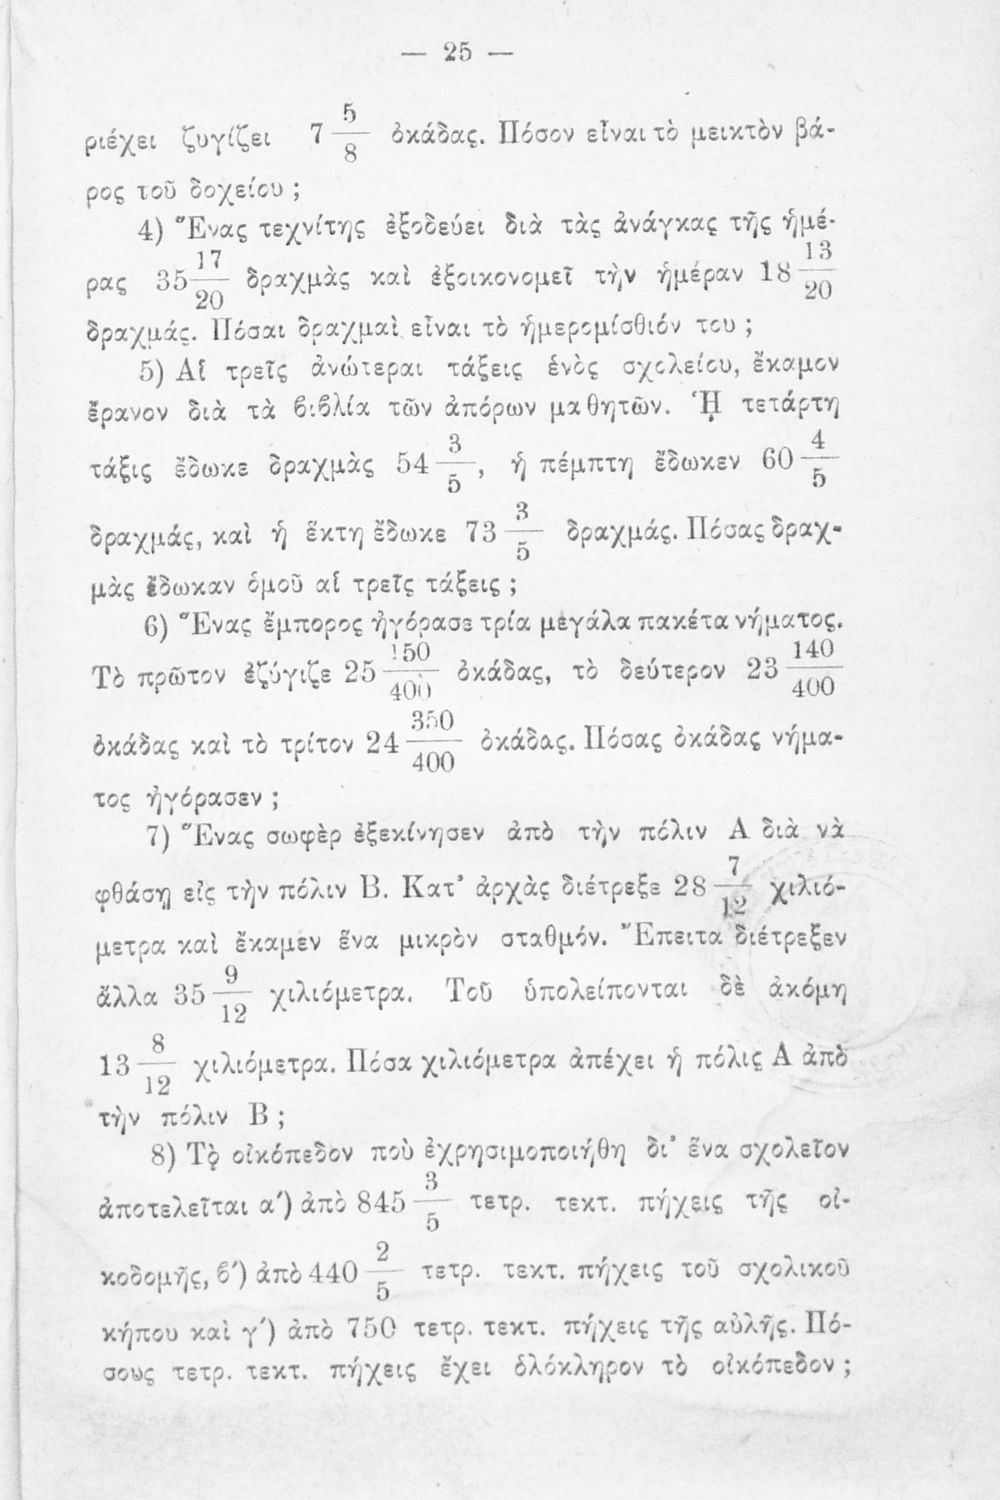 — 25 —
ριέχει ζυγίζει 7 5/8 ὀκάδας. Πόσον εἶναι τὸ μεικτὸν βά-
ρος τοῦ δοχείου ;
4) Ἕνας τεχνίτης ἐξοδεύει διὰ τὰς ἀνάγκας τῆς ἡμέ-
ρας 35 17/20 δραχμὰς καὶ ἐξοικονομεῖ τὴν ἡμέραν 18 13/20
δραχμάς. Πόσαι δραχμαὶ εἶναι τὸ ἡμερομίσθιόν του ;
5) Αἱ τρεῖς ἀνώτεραι τάξεις ἑνὸς σχολείου, ἔκαμον
ἔρανον διὰ τὰ βιβλία τῶν ἀπόρων μαθητῶν. Ἡ τετάρτη
τάξις ἔδωκε δραχμὰς 54 3/5, ἡ πέμπτη ἔδωκεν 60 4/5
δραχμάς, καὶ ἡ ἕκτη ἔδωκε 73 3/5 δραχμάς. Πόσας δραχ-
μὰς ἔδωκαν ὁμοῦ αἱ τρεῖς τάξεις ;
6) Ἕνας ἔμπορος ἠγόρασε τρία μεγάλα πακέτα νήματος.
Τὸ πρῶτον ἐζύγιζε 25 150/400 ὀκάδας, τὸ δεύτερον 23 140/400
ὀκάδας καὶ τὸ τρίτον 24 350/400 ὀκάδας. Πόσας ὀκάδας νήμα-
τος ἠγόρασεν ;
7) Ἕνας σωφὲρ ἐξεκίνησεν ἀπὸ τὴν πόλιν Α διὰ νὰ
φθάσῃ εἰς τὴν πόλιν Β. Κατ' ἀρχὰς διέτρεξε 28 7/12 χιλιό-
μετρα καὶ ἔκαμεν ἕνα μικρὸν σταθμόν. Ἔπειτα διέτρεξεν
ἄλλα 35 9/12 χιλιόμετρα. Τοῦ ὑπολείπονται δὲ ἀκόμη
13 8/12 χιλιόμετρα. Πόσα χιλιόμετρα ἀπέχει ἡ πόλις Α ἀπὸ
τὴν πόλιν Β ;
8) Τὸ οἰκόπεδον ποὺ ἐχρησιμοποιήθη δι' ἕνα σχολεῖον
ἀποτελεῖται α') ἀπὸ 845 3/5 τετρ. τεκτ. πήχεις τῆς οἰ-
κοδομῆς, β') ἀπὸ 440 2/5 τετρ. τεκτ. πήχεις τοῦ σχολικοῦ
κήπου καὶ γ') ἀπὸ 750 τετρ. τεκτ. πήχεις τῆς αὐλῆς. Πό-
σους τετρ. τεκτ. πήχεις ἔχει ὁλόκληρον τὸ οἰκόπεδον ;